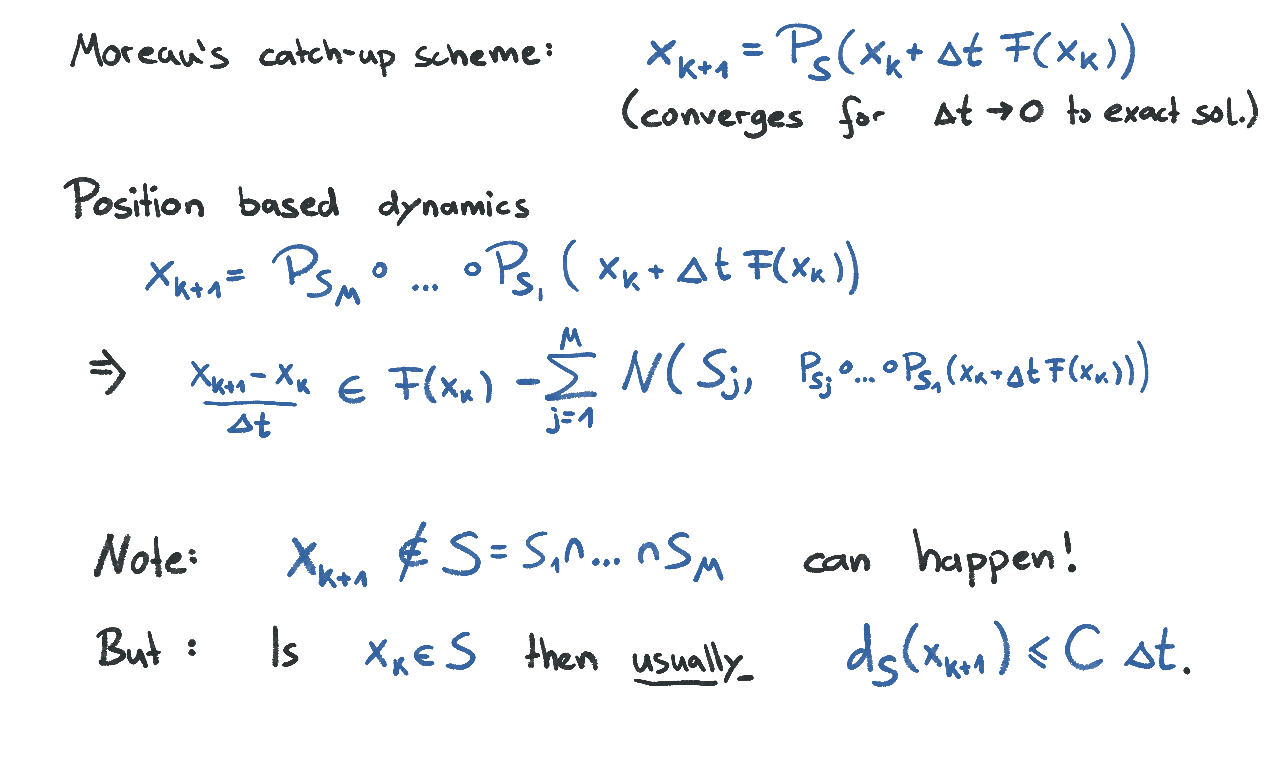 Moreau's catch-up scheme: x_{k+1} = P_S(x_k + Δt F(x_k))
(converges for Δt → 0 to exact sol.)
Position based dynamics
x_{k+1} = P_{S_M} ∘ ... ∘ P_{S_1} (x_k + Δt F(x_k))
⇒ \frac{x_{k+1} - x_k}{Δt} ∈ F(x_k) - \sum_{j=1}^{M} N(S_j, P_{S_j} ∘ ... ∘ P_{S_1}(x_k + Δt F(x_k)))
Note: x_{k+1} ∉ S = S_1 ∩ ... ∩ S_M can happen!
But: Is x_k ∈ S then usually d_S(x_{k+1}) ≤ C Δt.